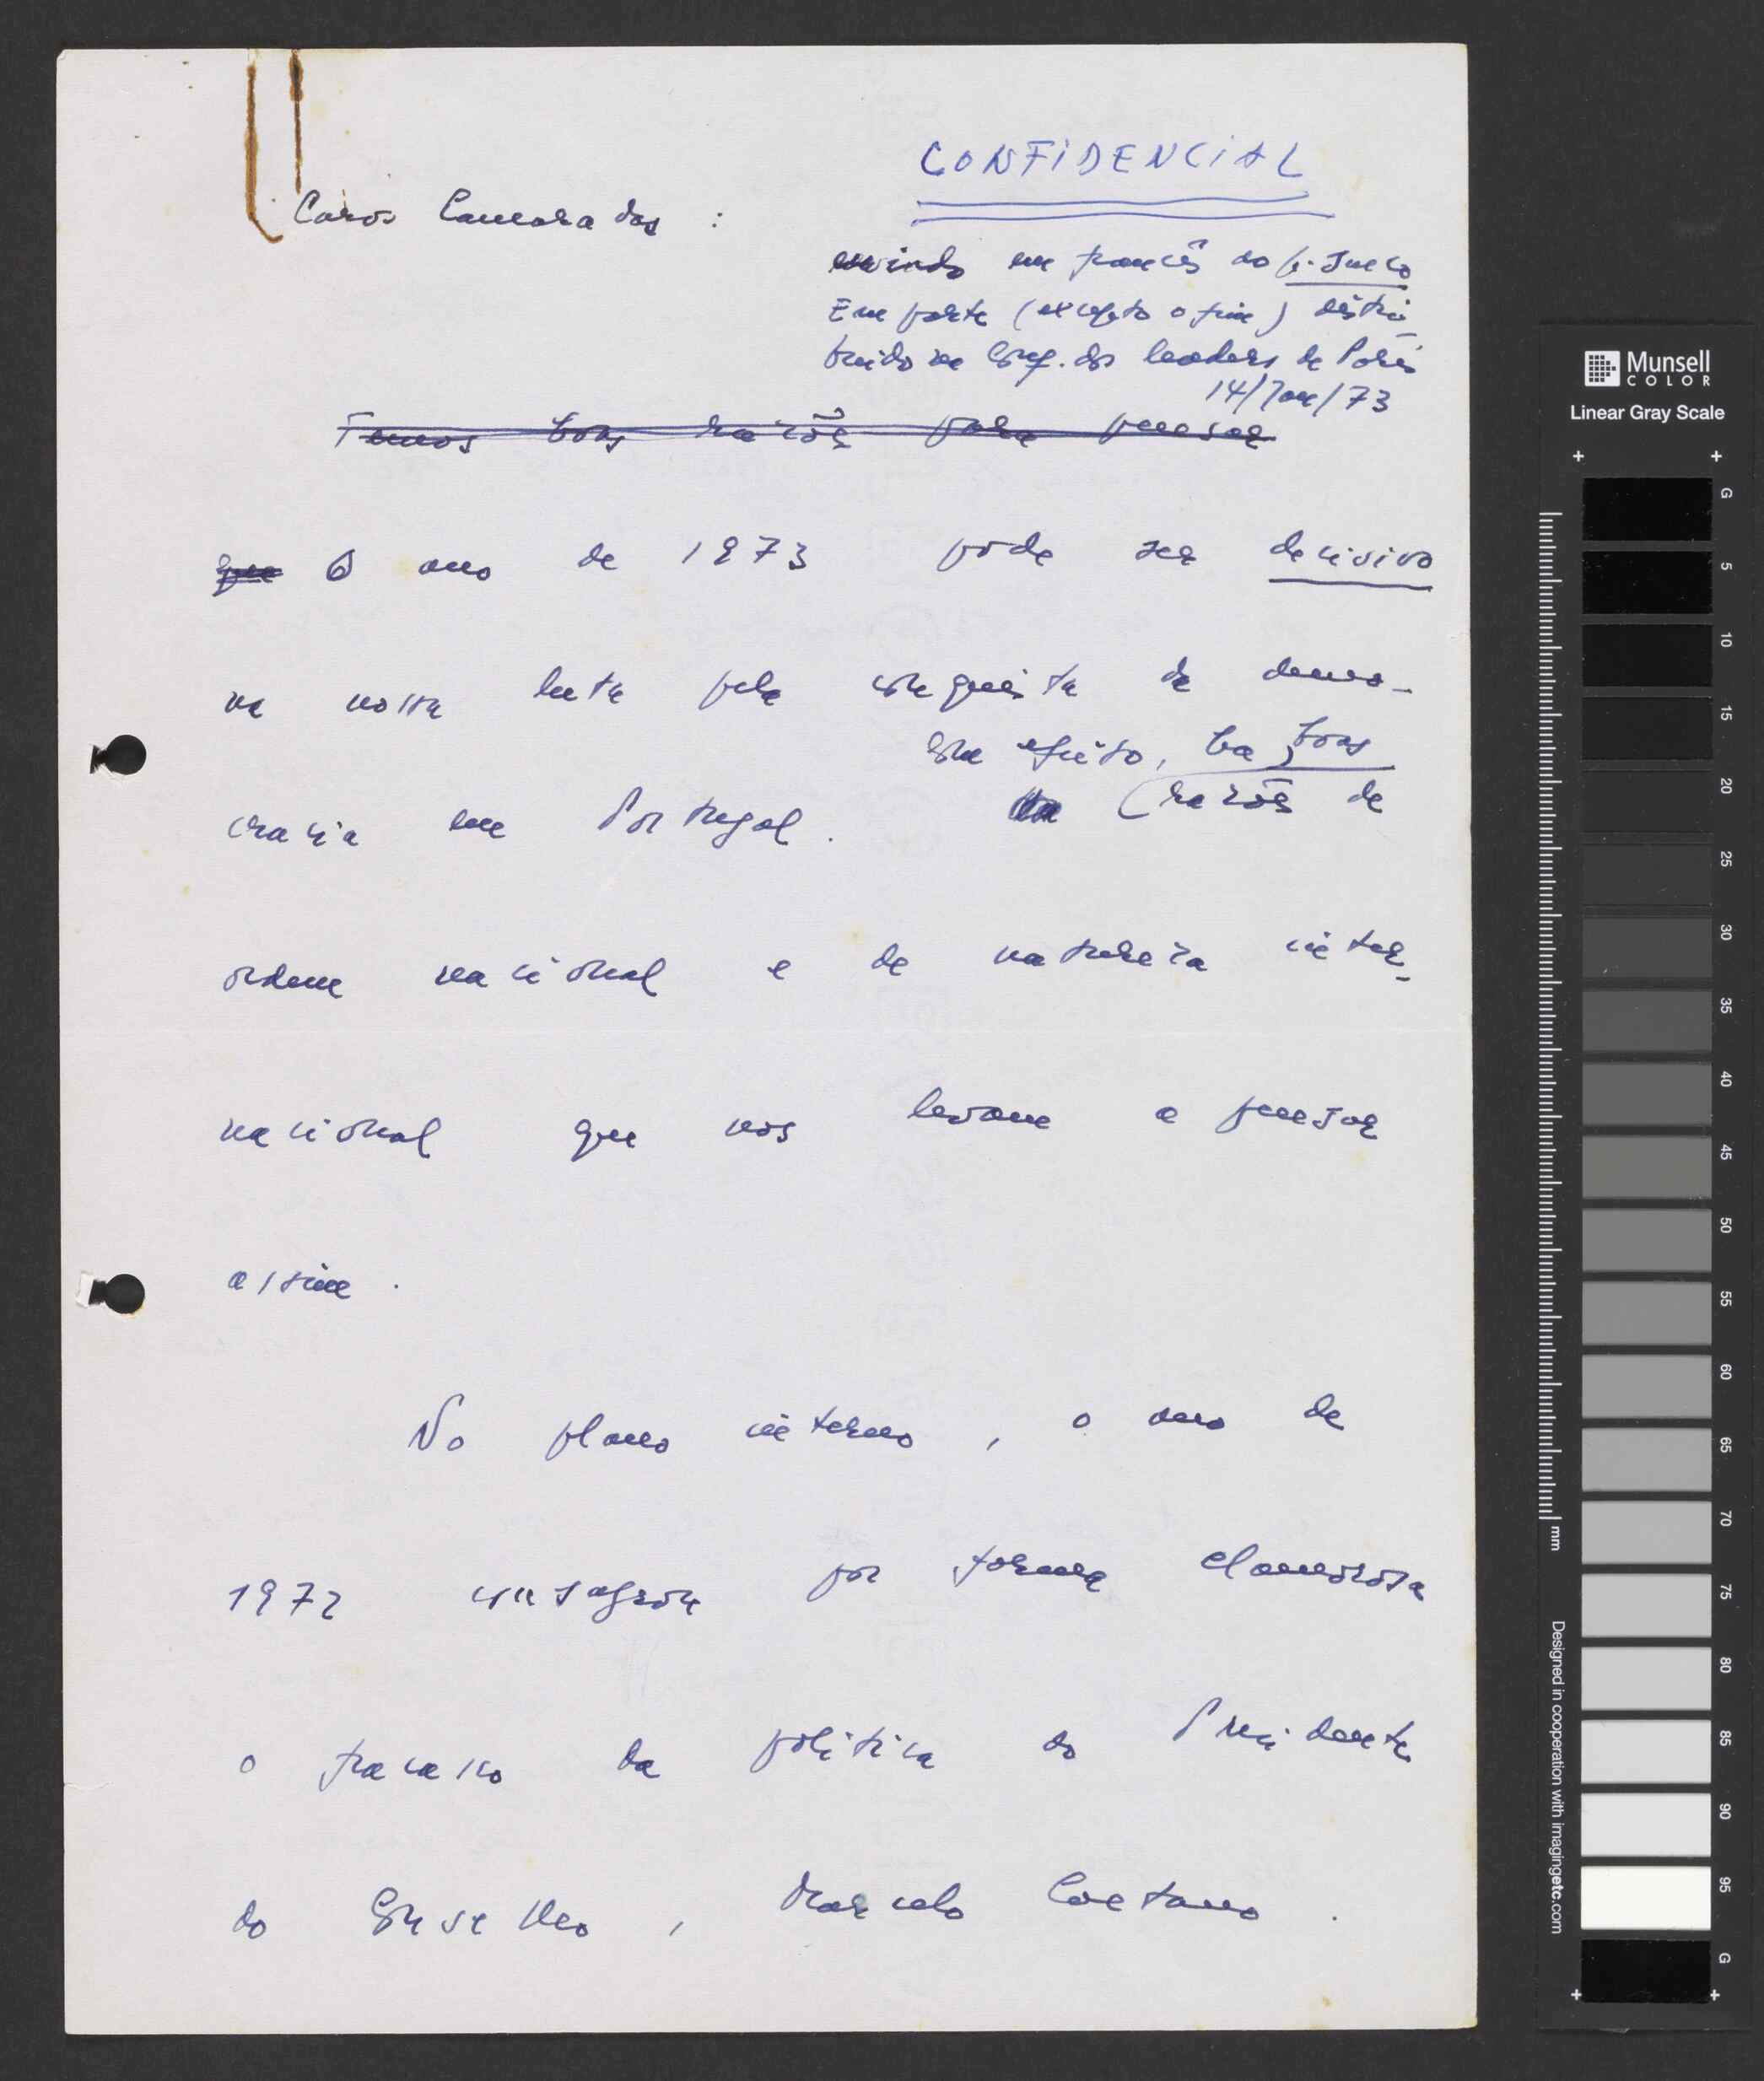 CONFIDENCIAL
Caros Camaradas :
enviado em francês ao p. sueco
Em parte (excepto o fim) distri-
buido na Conf. dos leaders de Paris
14/Jan/73
Temos boas razões para pensar
que O ano de 1973 pode ser decisivo
na nossa luta pela conquista da demo-
Com efeito, ha boas
cracia em Portugal. razões de
ordem nacional e de natureza inter-
nacional que nos levam a pensar
assim.
No plano interno, o ano de
1972 consagrou por forma clamorosa
o fracasso da politica do Presidente
do Conselho, Marcelo Caetano.
Munsell
COLOR
Linear Gray Scale
G
5
10
15
20
25
30
35
40
45
50
55
60
65
70
75
80
85
90
95
G
mm
Designed in cooperation with imagingetc.com